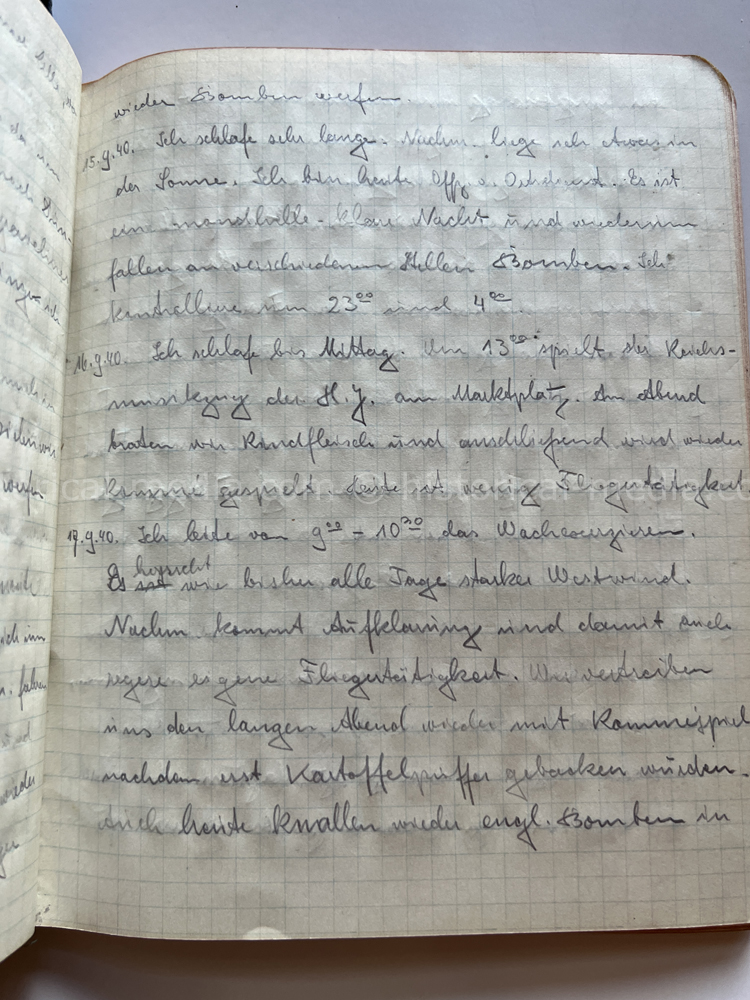 wieder Bomben werfen.
15.9.40. Ich schlafe sehr lange. Nachm. liege ich etwas in
der Sonne. Ich bin heute Offz. v. Ortsdienst. Es ist
eine mondhelle - klare Nacht und wiederum
fallen an verschiedenen Stellen Bomben. Ich
kontrolliere um 23⁰⁰ und 4⁰⁰.
16.9.40. Ich schlafe bis Mittag. Um 13⁰⁰ spielt der Reichs-
musikzug der H.J. am Marktplatz. Am Abend
braten wir Rindfleisch und anschließend wird wieder
gespielt. Heute ist wenig Fliegertätigkeit.
17.9.40. Ich leite von 9⁰⁰ - 10³⁰ das Wachexerzieren.
Es herrscht wie bisher alle Tage starker Westwind.
Nachm kommt Aufklarung und damit auch
regere eigene Fliegertätigkeit. Wir vertreiben
uns den langen Abend wieder mit
nachdem erst Kartoffelpuffer gebacken wurden.
Auch heute knallen wieder engl. Bomben in